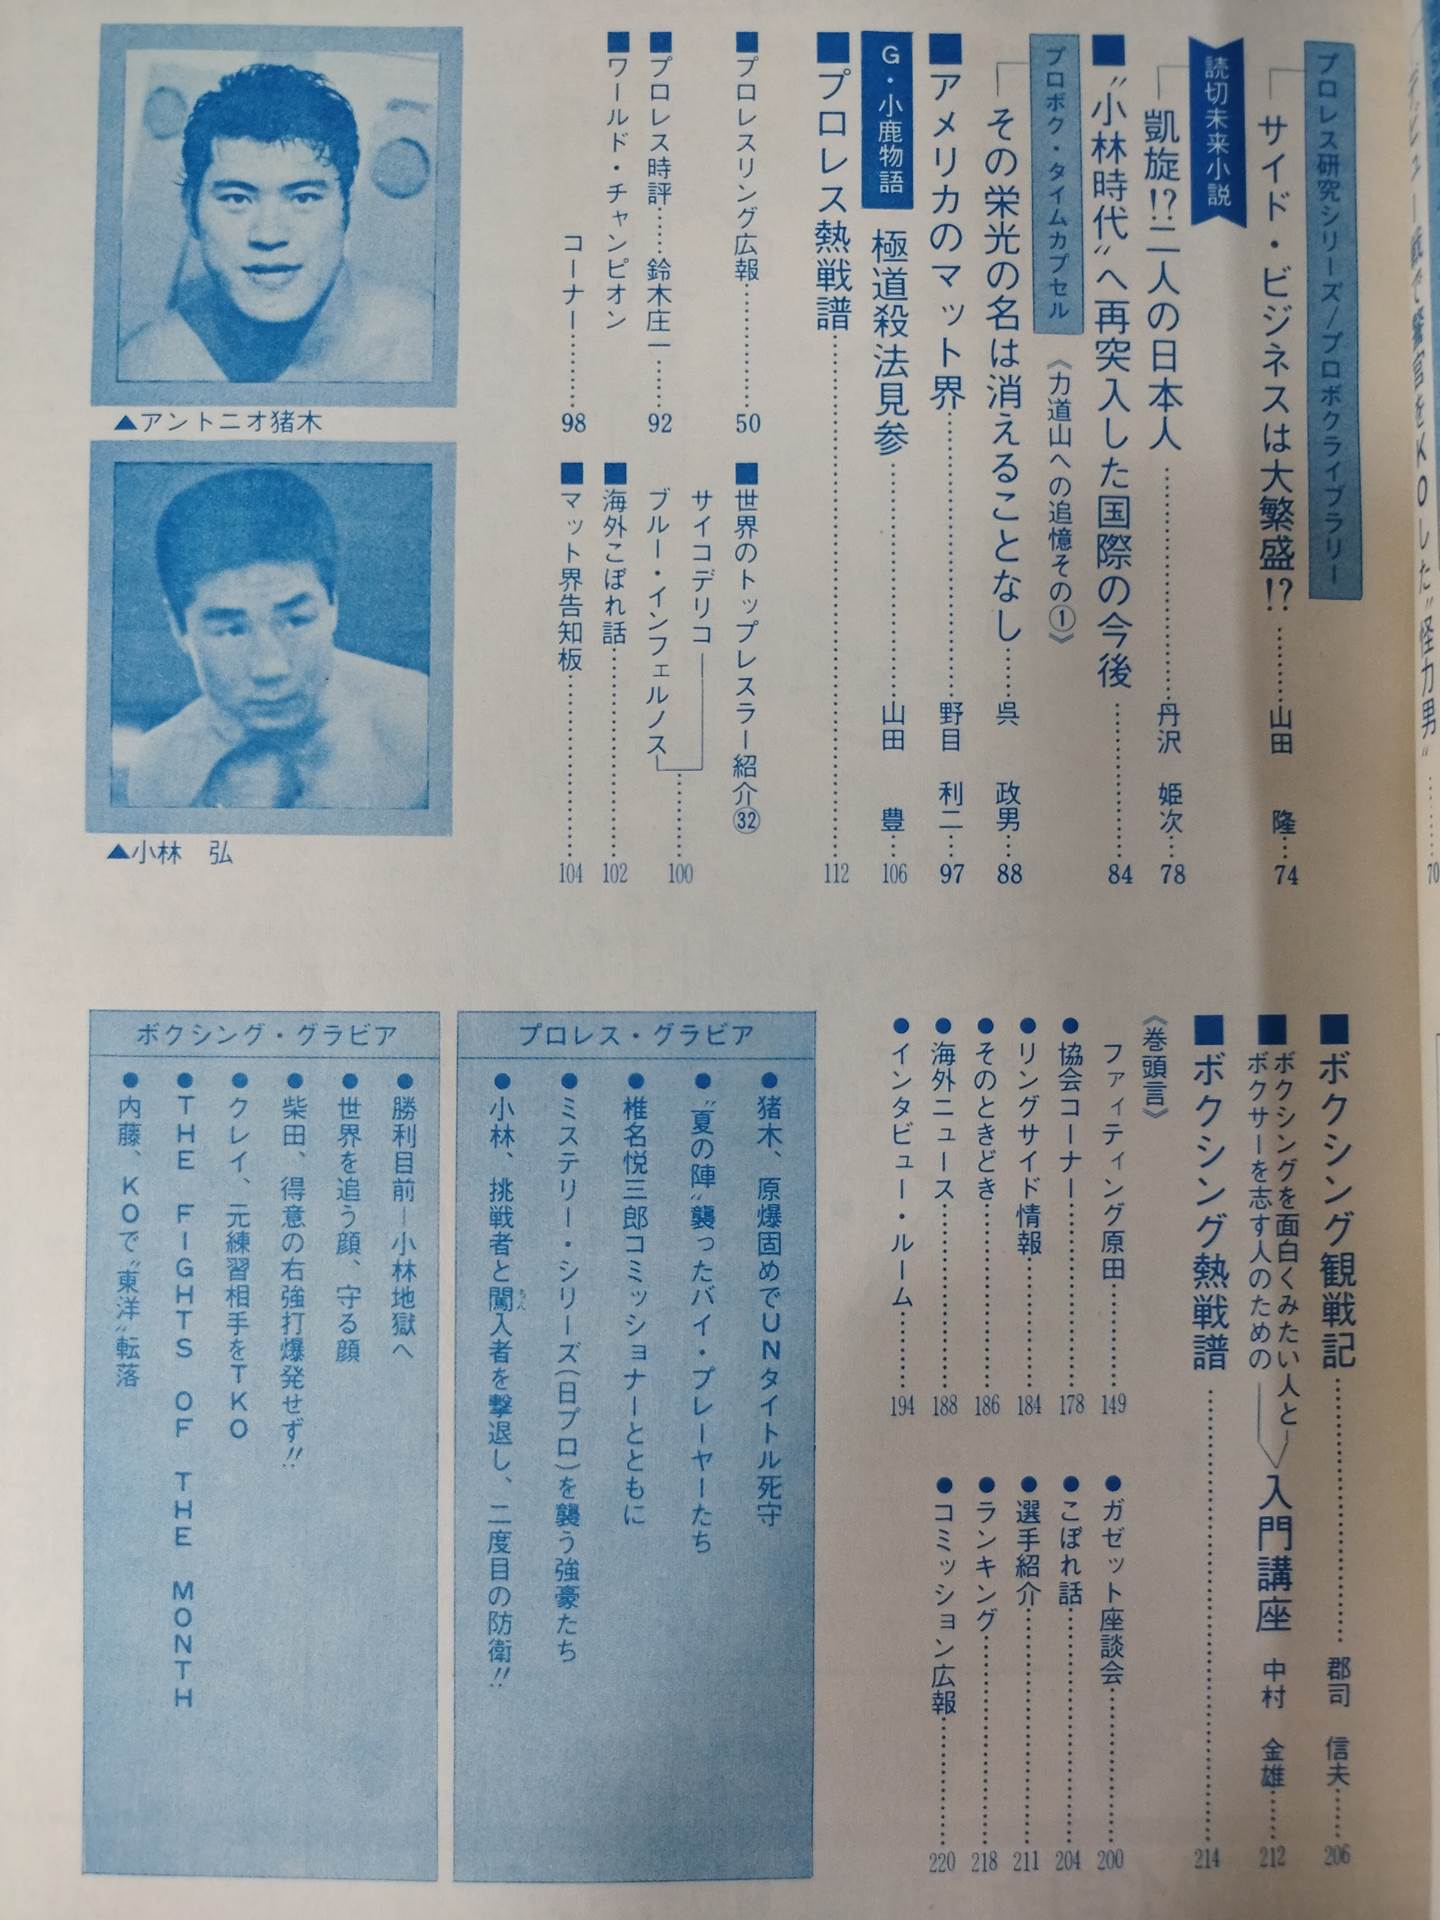 した〝怪力男〟………70
プロレス研究シリーズ/プロボクライブラリー
サイド・ビジネスは大繁盛!?………山田　隆…74
読切未来小説
凱旋!?二人の日本人………丹沢　姫次…78
■〝小林時代〟へ再突入した国際の今後………84
プロボク・タイムカプセル
《力道山への追憶その①》
その栄光の名は消えることなし……呉　政男…88
■アメリカのマット界………野目　利二…97
G・小鹿物語
極道殺法見参………山田　豊…106
■プロレス熱戦譜………112
■プロレスリング広報………50
■プロレス時評……鈴木庄一……92
■ワールド・チャンピオン
コーナー………98
■世界のトップレスラー紹介㉜
サイコデリコ
ブルー・インフェルノス
………100
■海外こぼれ話………102
■マット界告知板………104
▲アントニオ猪木
▲小林　弘
■ボクシング観戦記………郡司　信夫……206
■ボクシングを面白くみたい人と
ボクサーを志す人のための
入門講座　中村　金雄……212
■ボクシング熱戦譜………214
《巻頭言》
ファィティング原田………149
●協会コーナー………178
●リングサイド情報………184
●そのときどき………186
●海外ニュース………188
●インタビュー・ルーム………194
●ガゼット座談会………200
●こぼれ話………204
●選手紹介………211
●ランキング………218
●コミッション広報………220
プロレス・グラビア
●猪木、原爆固めでUNタイトル死守
●〝夏の陣〟襲ったバイ・プレーヤーたち
●椎名悦三郎コミッショナーとともに
●ミステリー・シリーズ(日プロ)を襲う強豪たち
●小林、挑戦者と闖入者を撃退し、二度目の防衛!!
ちん
ボクシング・グラビア
●勝利目前—小林地獄へ
●世界を追う顔、守る顔
●柴田、得意の右強打爆発せず!!
●クレイ、元練習相手をTKO
●THE FIGHTS OF THE MONTH
●内藤、KOで〝東洋〟転落